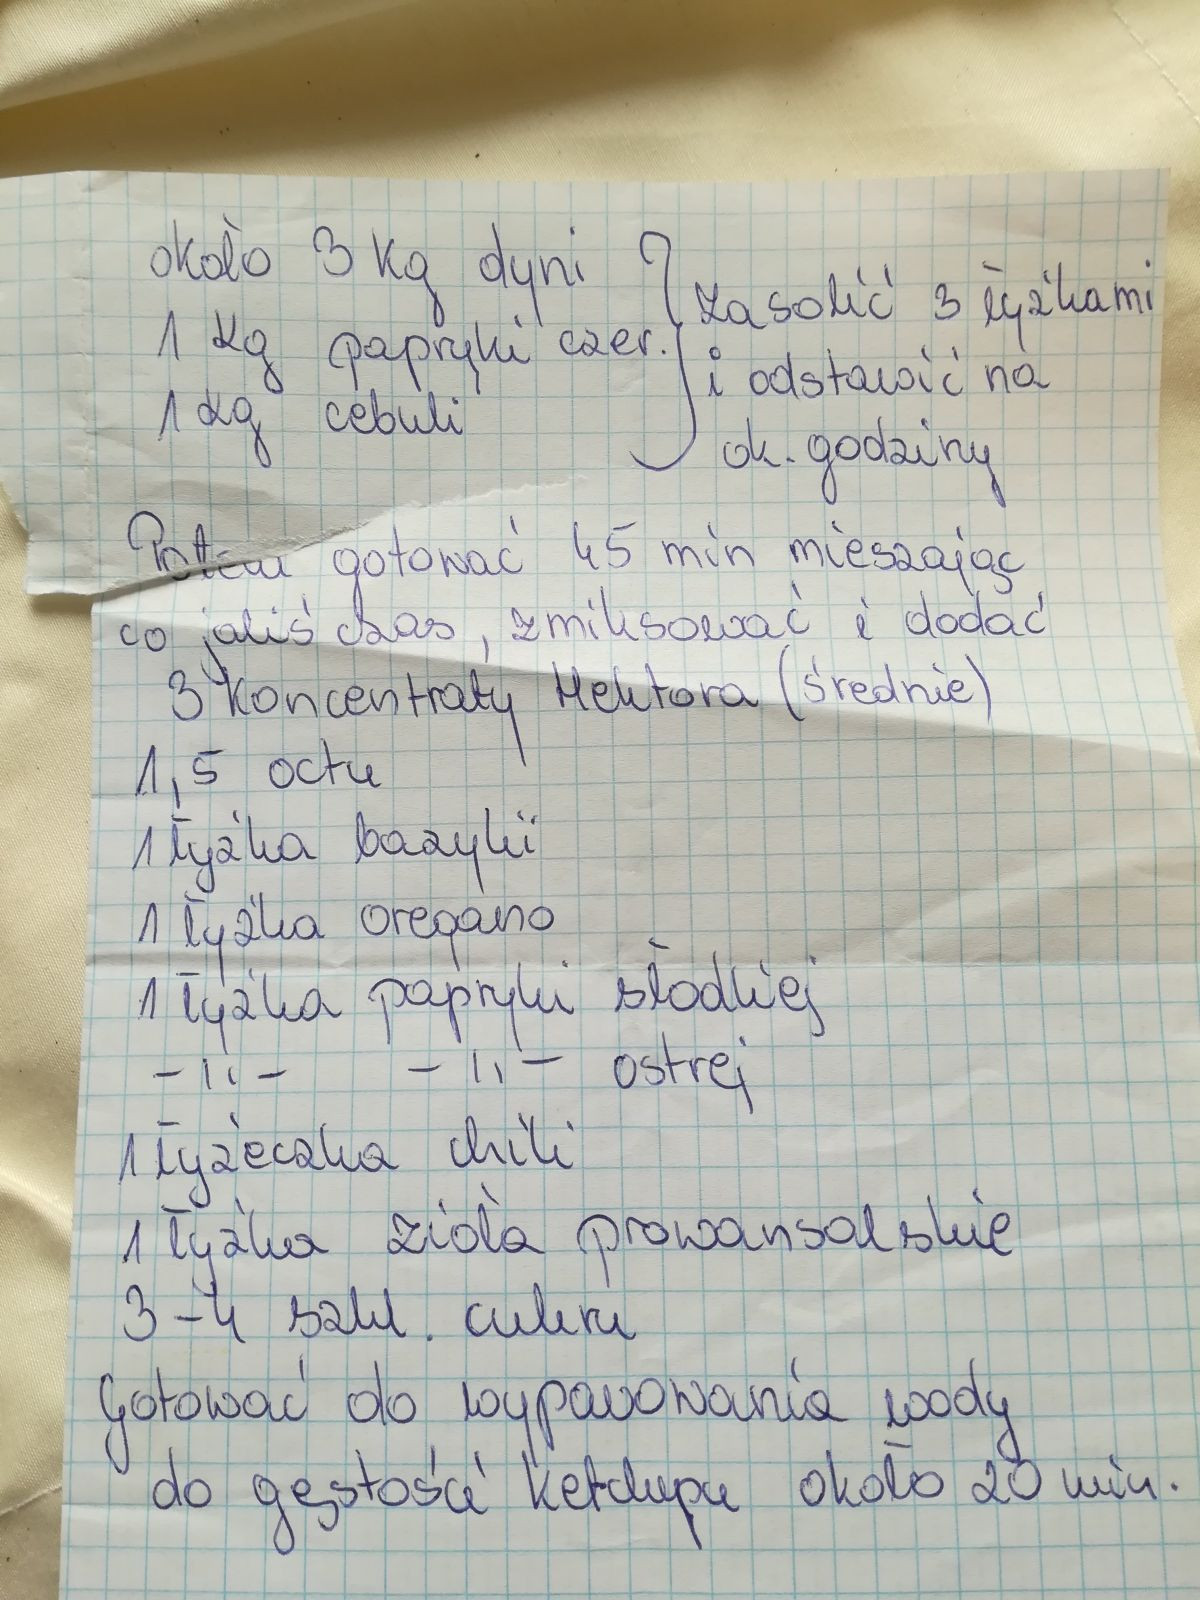 około 3 kg dyni
1 kg papryki czer.
1 kg cebuli
zasolić 3 łyżkami
i odstawić na
ok. godziny
Potem gotować 45 min mieszając
co jakiś czas, zmiksować i dodać
3 koncentraty Hektora (średnie)
1,5 octu
1 łyżka bazylii
1 łyżka oregano
1 łyżka papryki słodkiej
-11- -11- ostrej
1 łyżeczka chili
1 łyżka zioła prowansalskie
3-4 szkl. cukru
Gotować do wyparowania wody
do gęstości ketchupu około 20 min.